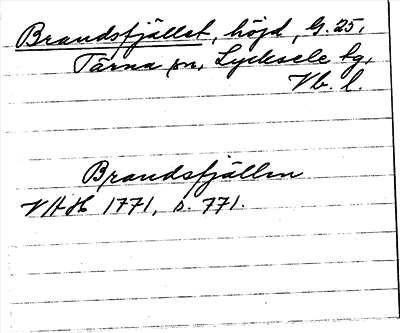 Brandsfjället, höjd, G. 25,
Tärna sn, Lycksele lg,
Vb. l.
Brandsfjällen
VAH 1771, s. 771.